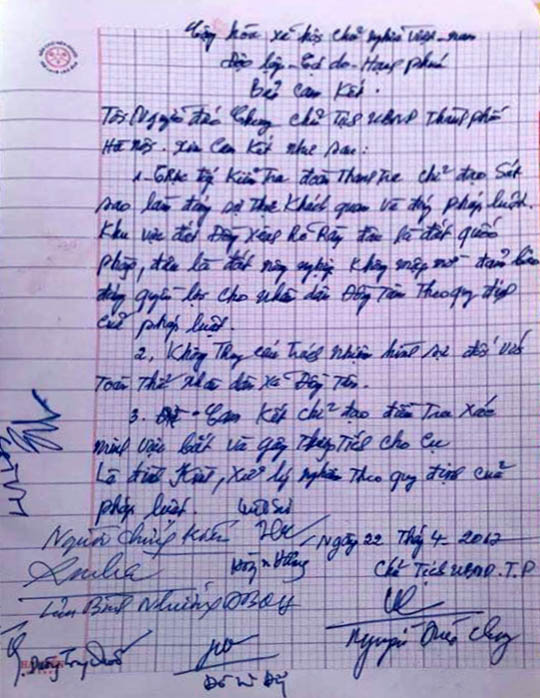 Cộng hòa xã hội chủ nghĩa Việt-nam
Độc lập - Tự do - Hạnh phúc
Bản Cam Kết.
Tôi Nguyễn Đức Chung chủ tịch UBND Thành phố
Hà Nội. xin Cam Kết như sau:
1. Trực tiếp Kiểm Tra đoàn Thanh Tra chỉ đạo Sát
sao làm đúng sự thực Khách quan và đúng pháp luật.
Khu vực đất Đồng Xênh Rõ Ràng đâu là đất quốc
phòng, đâu là đất nông nghiệp Không mập mờ đảm bảo
đúng quyền lợi cho nhân dân Đồng Tâm Theo quy định
của pháp luật.
2, Không Truy cứu Trách nhiệm hình sự đối với
Toàn Thể nhân dân xã Đồng Tâm.
3. Cam Kết chỉ đạo điều Tra Xác
minh việc bắt và gây Thương Tích cho Cụ
Lê đình Kình, Xử lý nghiêm Theo quy định của
pháp luật. Luật Sư
Người chứng kiến
Ngày 22 Thg 4 - 2017
Chủ Tịch UBND.T.P
Lưu Bình Nhưỡng ĐBQH
Nguyễn Đức Chung
Dương Trung Quốc